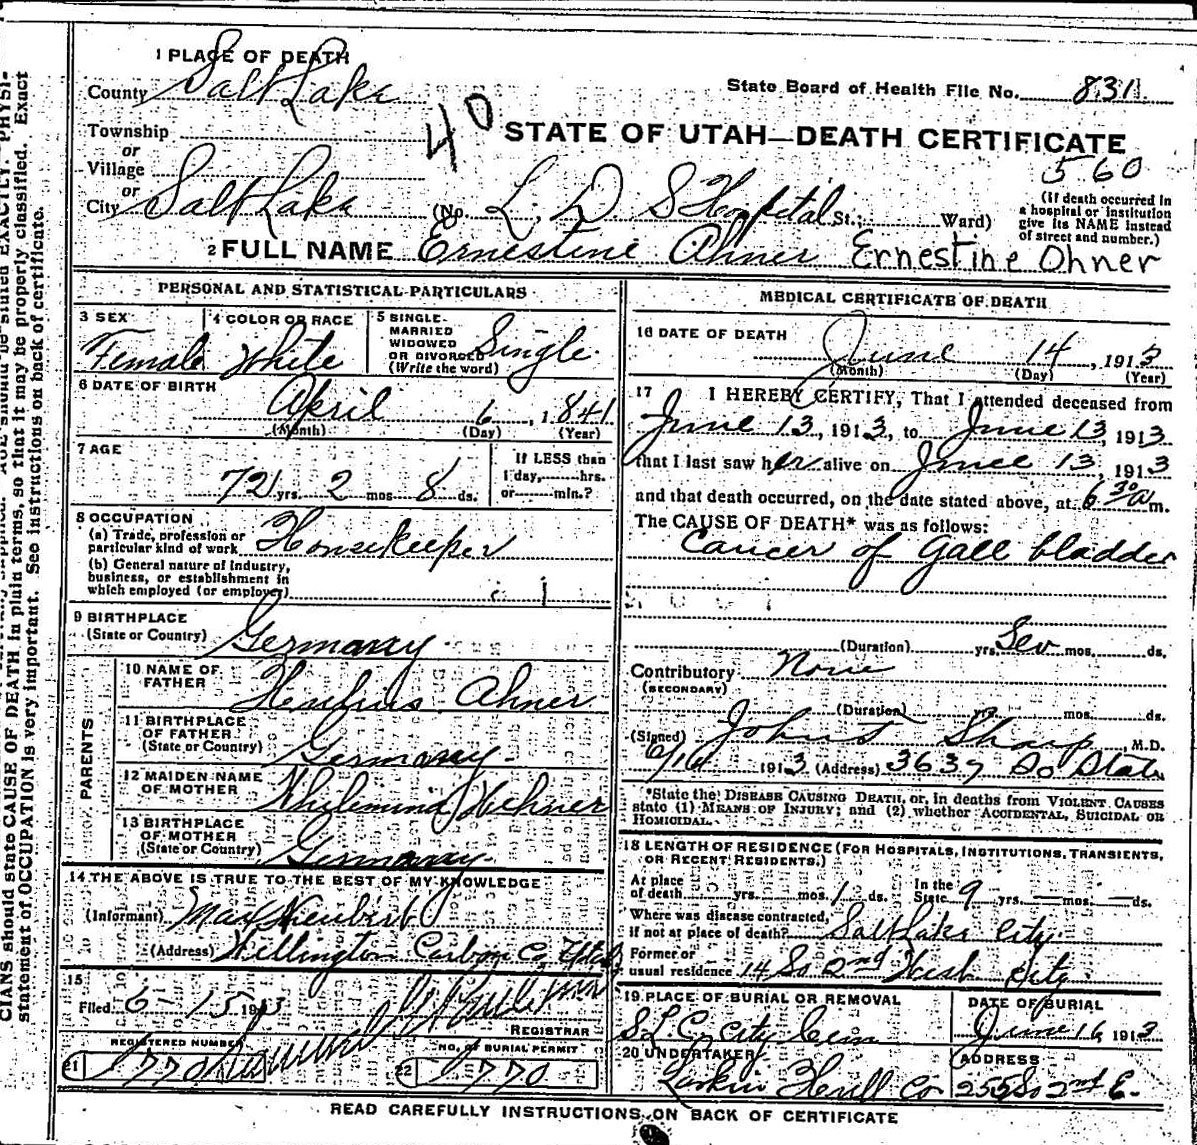 1 PLACE OF DEATH
County Salt Lake
State Board of Health File No. 831
40
STATE OF UTAH—DEATH CERTIFICATE
Township
or
Village
or
City Salt Lake (No. L. D S Hospital St.; Ward)
560
(If death occurred in
a hospital or institution
give its NAME instead
of street and number.)
2 FULL NAME Ernestine Ahner Ernestine Ohner
PERSONAL AND STATISTICAL PARTICULARS
3 SEX Female
4 COLOR OR RACE White
5 SINGLE-
MARRIED
WIDOWED
OR DIVORCED
(Write the word) Single
6 DATE OF BIRTH
April 6, 1841
(Month) (Day) (Year)
7 AGE
72 yrs. 2 mos. 8 ds.
If LESS than
1 day, hrs.
or min.?
8 OCCUPATION
(a) Trade, profession or
particular kind of work Housekeeper
(b) General nature of industry,
business, or establishment in
which employed (or employer)
9 BIRTHPLACE
(State or Country) Germany
PARENTS
10 NAME OF
FATHER Ahner
11 BIRTHPLACE
OF FATHER
(State or Country) Germany
12 MAIDEN NAME
OF MOTHER
13 BIRTHPLACE
OF MOTHER
(State or Country) Germany
14 THE ABOVE IS TRUE TO THE BEST OF MY KNOWLEDGE
(Informant) Max
(Address) Wellington Carbon Co. Utah
15
Filed 6-15 1913
REGISTRAR
REGISTERED NUMBER
21 1770
NO. OF BURIAL PERMIT
22 1770
MEDICAL CERTIFICATE OF DEATH
16 DATE OF DEATH
June 14, 1913
(Month) (Day) (Year)
17 I HEREBY CERTIFY, That I attended deceased from
June 13, 1913, to June 13, 1913
that I last saw her alive on June 13, 1913
and that death occurred, on the date stated above, at 6 30 a m.
The CAUSE OF DEATH* was as follows:
Cancer of Gall bladder
(Duration) yrs. Sev mos. ds.
Contributory None
(SECONDARY)
(Duration) yrs. mos. ds.
(Signed) John S Sharp, M.D.
6/16 1913 (Address) 3637 So State
*State the DISEASE CAUSING DEATH, or, in deaths from VIOLENT CAUSES
state (1) MEANS OF INJURY; and (2) whether ACCIDENTAL, SUICIDAL OR
HOMICIDAL.
18 LENGTH OF RESIDENCE (FOR HOSPITALS, INSTITUTIONS, TRANSIENTS,
OR RECENT RESIDENTS.)
At place
of death yrs. mos. 1 ds.
In the
State 9 yrs. — mos. — ds.
Where was disease contracted,
if not at place of death? Salt Lake City
Former or
usual residence 14 So 2nd West City
19 PLACE OF BURIAL OR REMOVAL
S L C City Cem
DATE OF BURIAL
June 16, 1913
20 UNDERTAKER
Larkin Co
ADDRESS
255 So 2nd E.
READ CAREFULLY INSTRUCTIONS ON BACK OF CERTIFICATE
CIANS should state CAUSE OF DEATH in plain terms, so that it may be properly classified. Exact
statement of OCCUPATION is very important. See instructions on back of certificate.